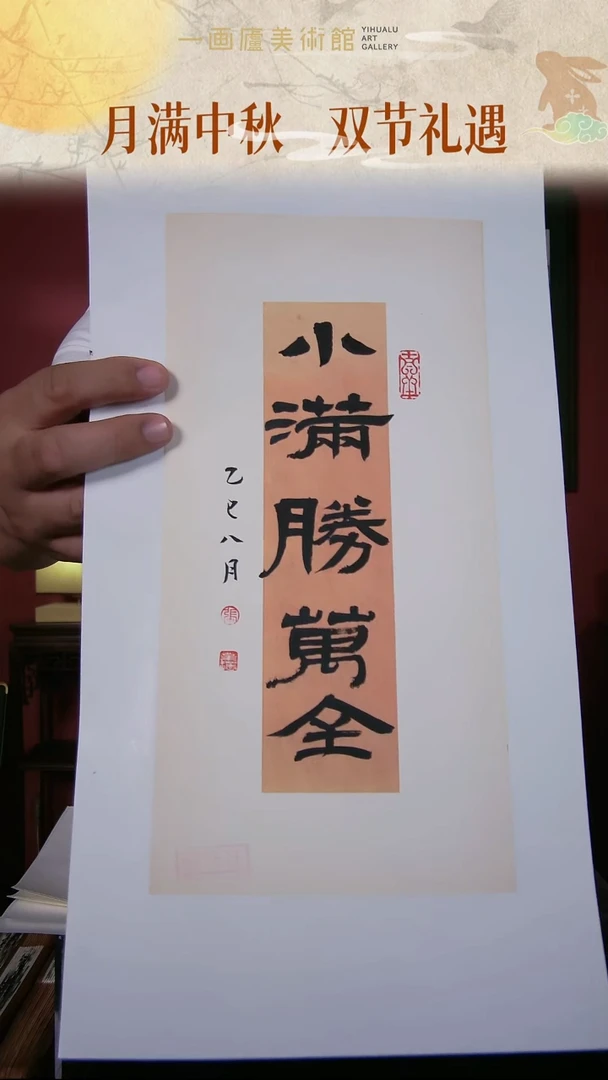 一画廬美術館
YIHUALU
ART
GALLERY
月满中秋 双节礼遇
小滿勝萬全
乙巳八月